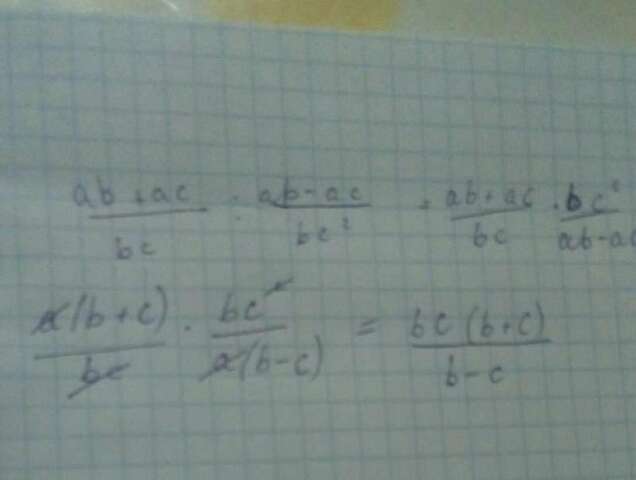 (ab+ac)/(bc) : (ab-ac)/(bc²) = (ab+ac)/(bc) · (bc²)/(ab-ac
(a(b+c))/(bc) · (bc²)/(a(b-c)) = (bc(b+c))/(b-c)